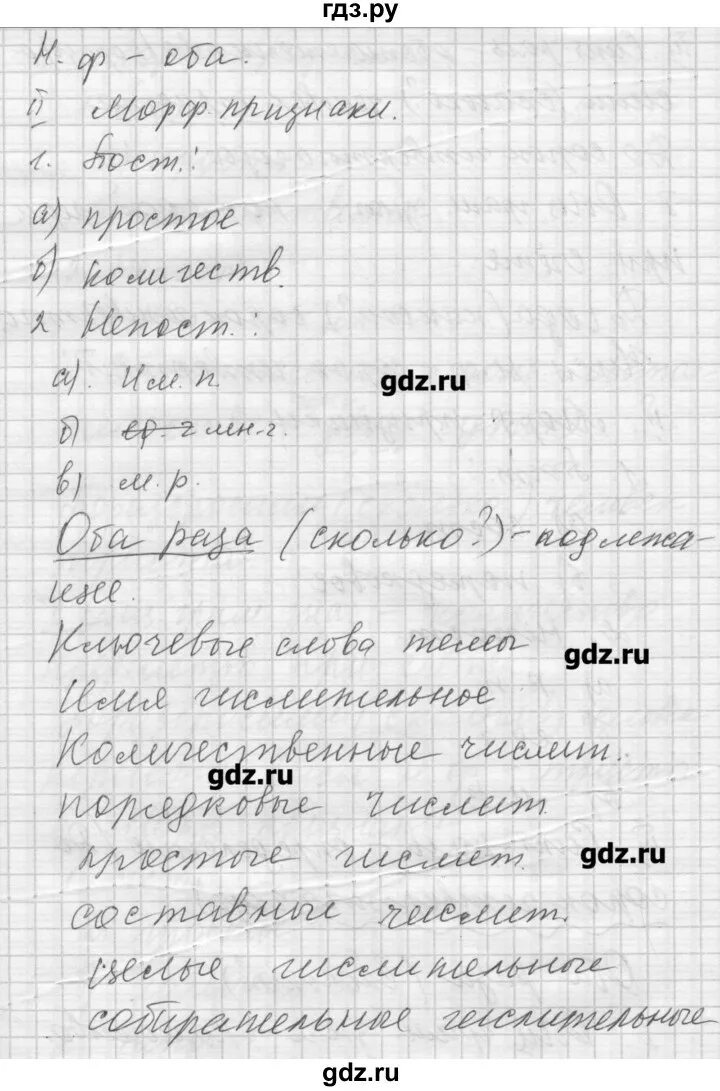 гдз.ру
Н. ф – оба.
II Морф. признаки.
1. Пост.:
а) простое
б) количеств.
2 Непост.:
а). Им. п.
gdz.ru
б) ед. ч мн. ч.
в) м. р.
Оба раза (сколько?) – подлежа-
щее.
Ключевые слова темы
gdz.ru
Имя числительное
Количественные числит.
gdz.ru
порядковые числит.
простые числит.
gdz.ru
составные числит.
целые числительные
собирательные числительные
gdz.ru